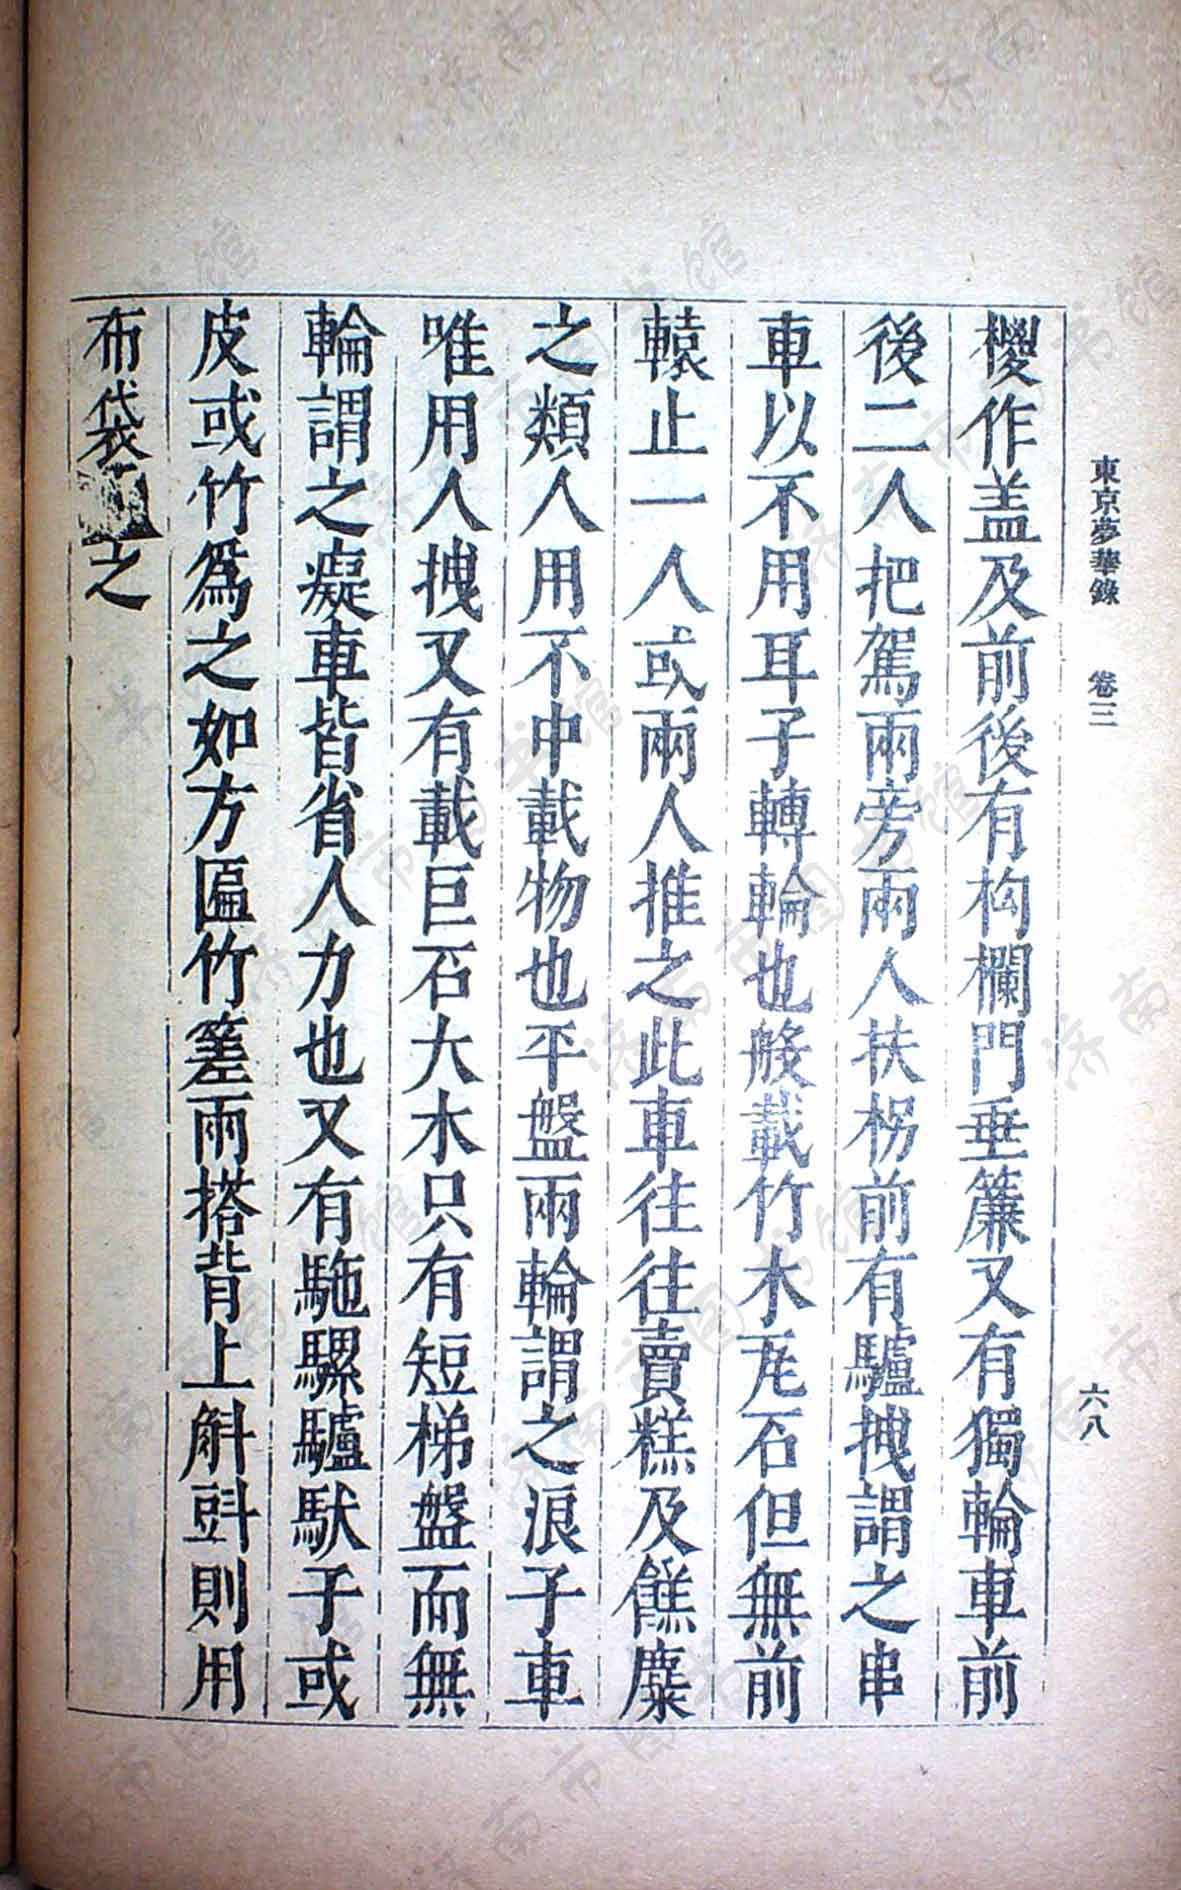 東京夢華錄 卷三 六八
椶作盖及前後有构欄門垂簾又有獨輪車前
後二人把駕兩旁兩人扶柺前有驢拽謂之串
車以不用耳子轉輪也般載竹木瓦石但無前
轅止一人或兩人推之此車往往賣糕及餻麋
之類人用不中載物也平盤兩輪謂之浪子車
唯用人拽又有載巨石大木只有短梯盤而無
輪謂之癡車皆省人力也又有駞騾驢馱子或
皮或竹爲之如方匾竹䉪兩搭背上斛㪷則用
布袋之